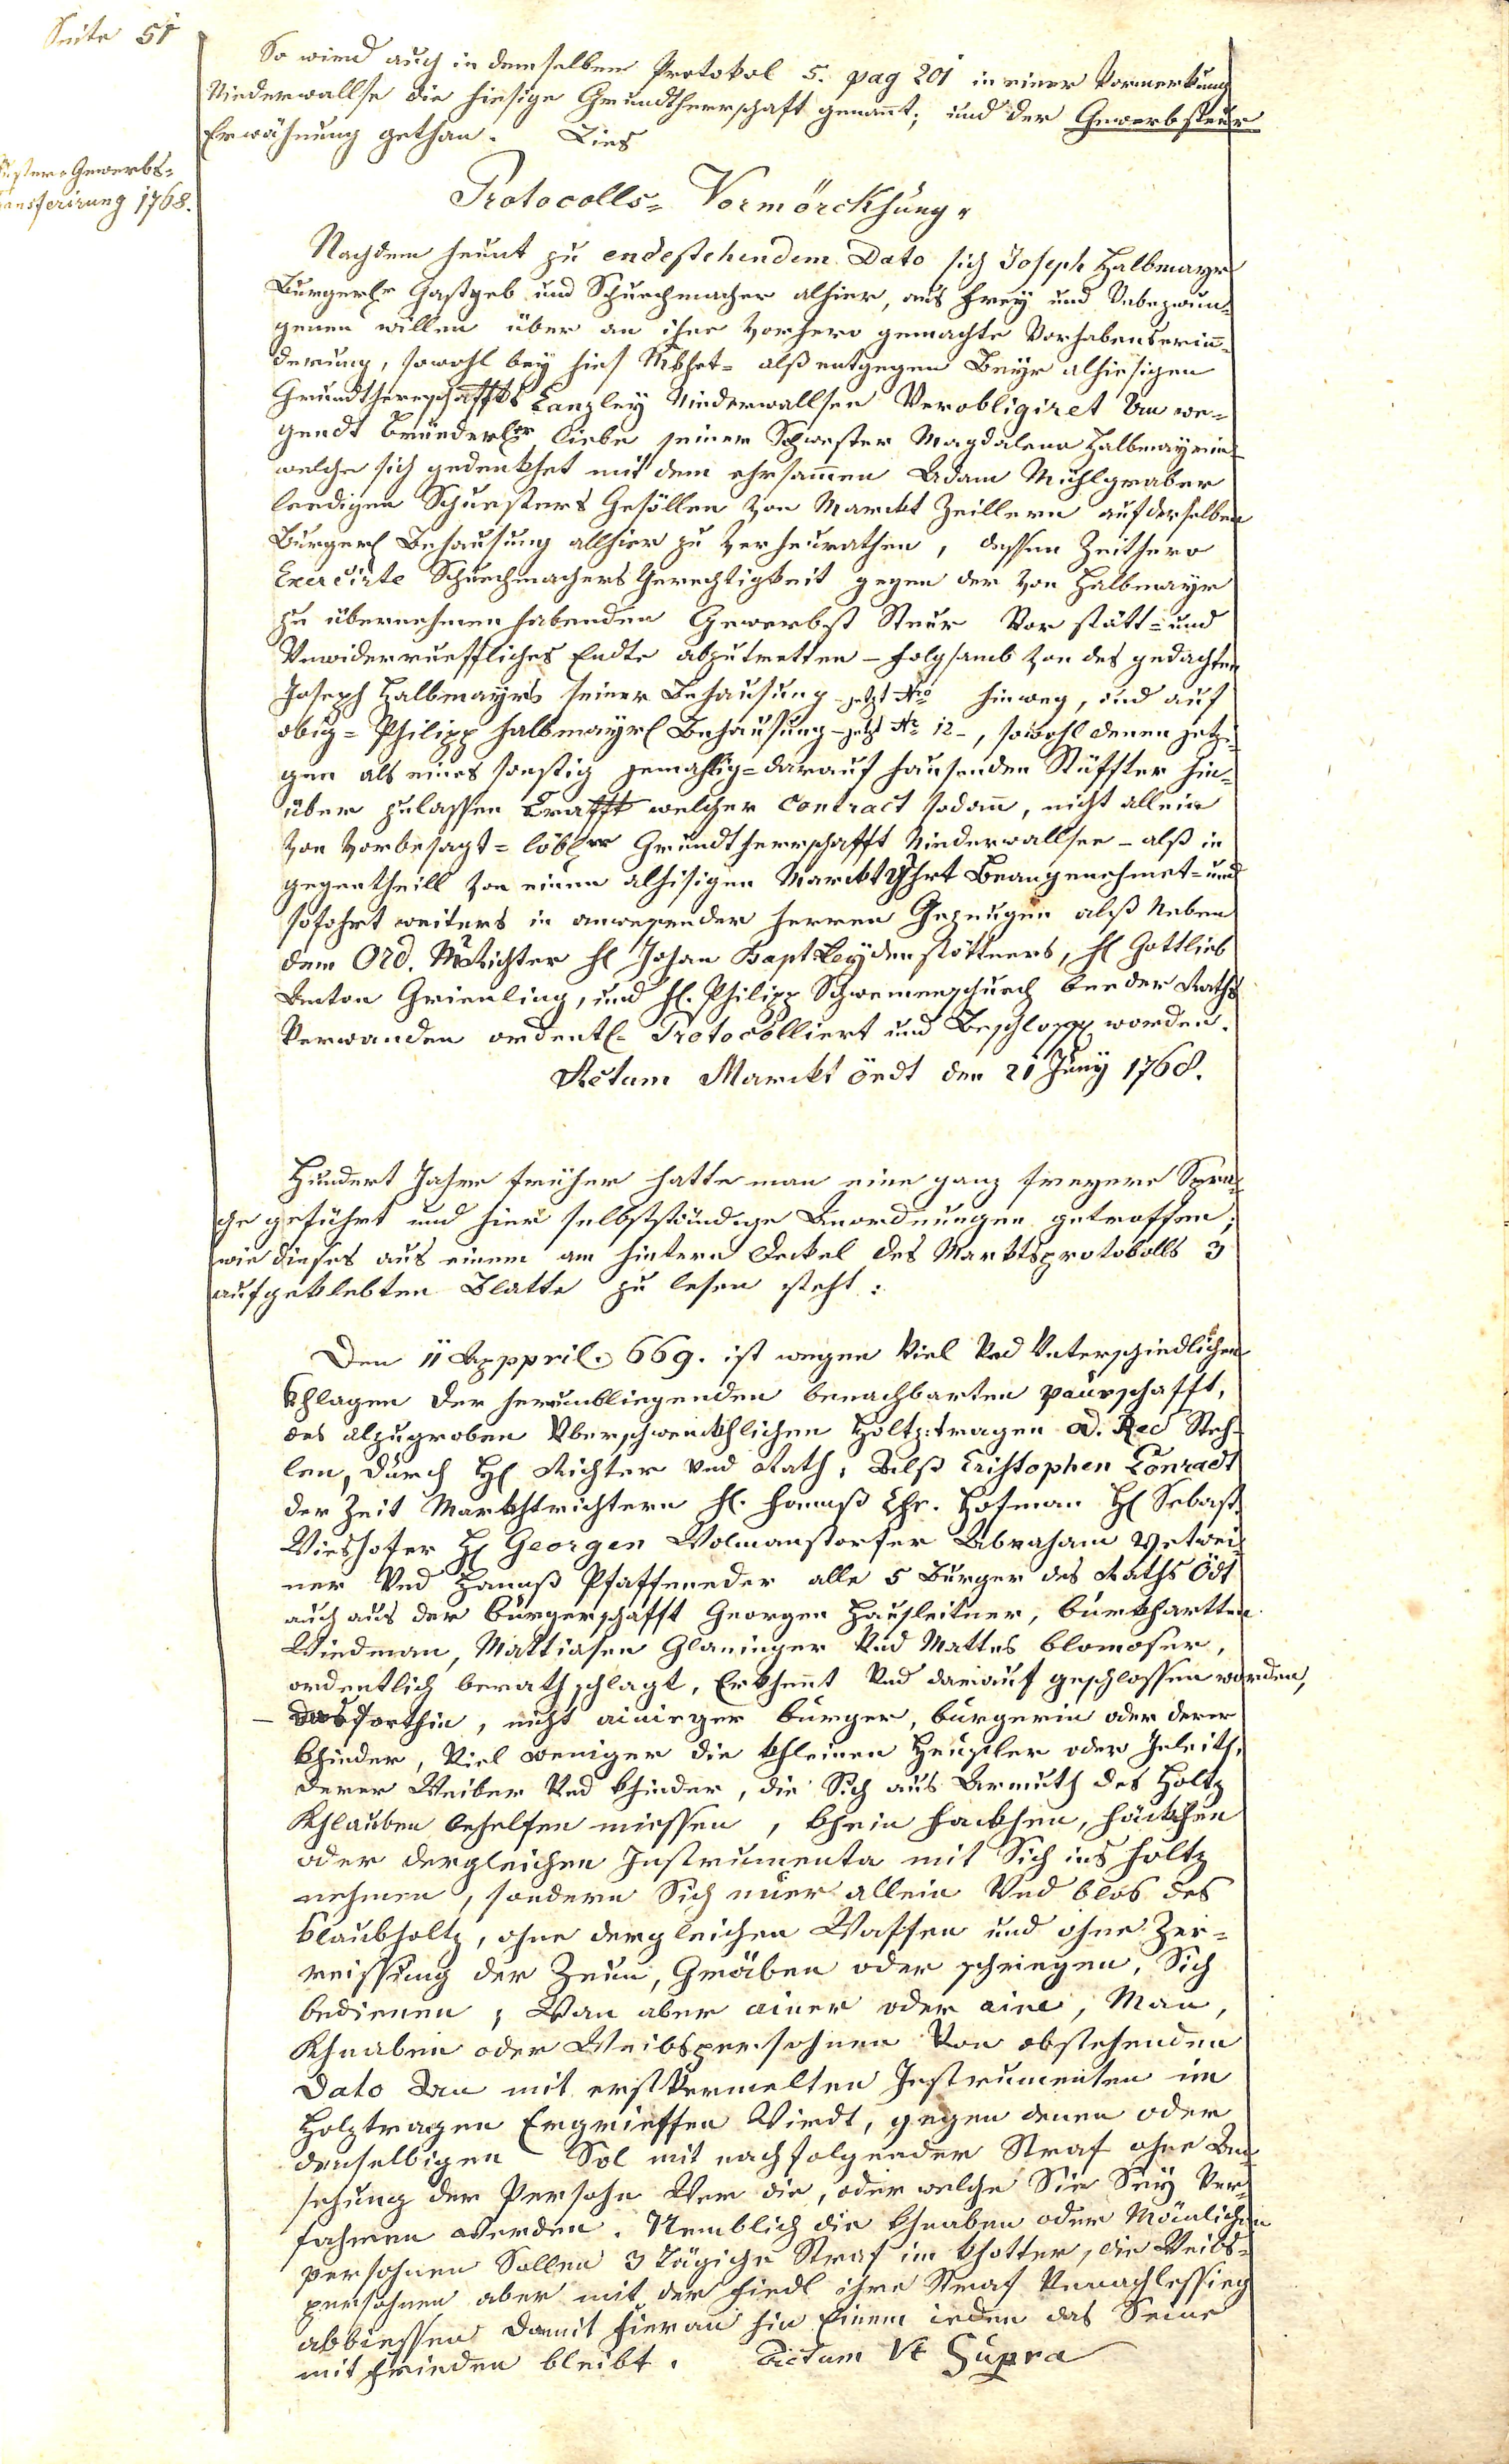 Seite 51
So wird auch in demselben Protokol 5. pag 201 in einer Vormerkung
Niederwallse die hiesige Grundtherrschaft genannt; und der Gewerbsteur
Erwähnung gethan. Lies
Gewerbs=
1768.
Protocolls= Vormörckhung.
Nachdem heunt zu endestehendem Dato sich Joseph Halbmayr
Burgerlr Gastgeb und Schuechmacher alhier, aus frey und Unbezwun=
genen willen über an ihne vorhero gemachte Vorhabenserinn=
derung, sowohl bey hies alß entgegen Beyr alhiesigen
Grundtherrschaffts Canzley Niederwallsee Verobligiret an we=
gendt Bruederlr liebe seiner Schwester Magdalena Halbmayrin
welche sich gedenkhet mit dem ehrsammen Adam Muhlgraber
leedigen Schuesters Gesöllen von Marckt Zeillern auf derselben
Burgerl Behausung allhier zu verheurathen, dessen Zeithero
Exercirte Schuechmachers Gerechtigkeit gegen der von Halbmayr
zu übernehmen habenden Gewerbst Steur Vor stätt= und
Unwiderruefliches Endte abzutretten – folgsamb von des gedachten
Joseph Halbmayrs seiner Behausung – jetzt Nro hinweg, und auf
obig= Philipp Halbmayrl Behausung – jetzt No 12 –, sowohl denen jetzi=
gen als eines sonstig darauf hausenden Stüffter hin=
über zulassen Krafft welcher Contract sodann, nicht allein
von vorbesagt= löblr Grundtherrschafft Niederwallsee – alß in
gegentheill von einem alhisigen Marckt Beangenehmet= und
sofohrt weiters in anwesender Herren Gezeugen alß Neben
dem Ord. MRichter Hl Johan Bapt Leydenstöttners, Hl Gottlieb
Anton Grienling, und Hl. Philipp Schwemenschuech beeder Raths
Verwanden ordentl. Protocolliert und Beschlossen worden.
Actum Marckt Öedt den 21 Juny 1768.
Hundert Jahre früher hatte man eine ganz freyere Spra=
che geführt und hier selbstständige Anordnungen getroffen;
wie dieses aus einem am hintern Deckel des Marktsprotokolls 3
aufgeklebten Blatte zu lesen steht:
Den 11 Apppril. 669. ist wegen Viel Und Unterschiedlichen
Khlagen der herumbliegenden benachbarten paurschafft,
des alzugroben Überschwenckhlichen Holtz:tragen Steh=
len, durch Hl Richter und Rath, Alß Cristophen Conradt
der Zeit Markhtrichtern Hl. Hannß Chr. Hofman Hl Sebast.
Vieshofer Hl Georgen Wolmanstorfer Abraham
ner Und Hannß Pfaffeneder alle 5 Burger des Raths Ödt
auch aus der burgerschafft Georgen Hausleitner, burkhartten
Windman, Mattiasen Glaninger Und Mattes blomoser,
ordentlich berathschlagt, Erkhennt Und darauf geschlossen worden,
– das forthin, nicht ainieger burger, burgerin oder derer
khinder, Viel weniger die khleinen Heusler oder Inleith,
derer Weiber Und khinder, die Sich aus Armuth des Holtz
Khlauben behelfen miessen, khein hackhen, häckhen
oder dergleichen Instrumenta mit Sich ins holtz
nehmen, sondern Sich nuer allein Und blos des
klaubholtz, ohne dergleichen Waffen und ohne Zer=
reissung der Zeun, Gräben oder schriegen, Sich
bedienen; Wan aber ainer oder aine, Man,
Khnaben oder Weibspersohnen Von obstehenden
Dato An mit erst Vermelten Instrumenten im
Holztragen Ergrieffen Wirdt, gegen denen oder
denselbigen Sol mit nachfolgender Straf ohne An=
sehung der Persohn Wer die, oder welche Sie Sey Ver=
fahren werden. Nemblich die khnaben oder Mänlichen
persohnen Sollen 3 Tägige Straf im khotter, die Weibs=
persohnen aber mit der fiedl ihre Straf Unnachlessieg
abbiessen damit hieran hin Einem ieden das Seine
mit frieden bleibt. Actum Ut Supra